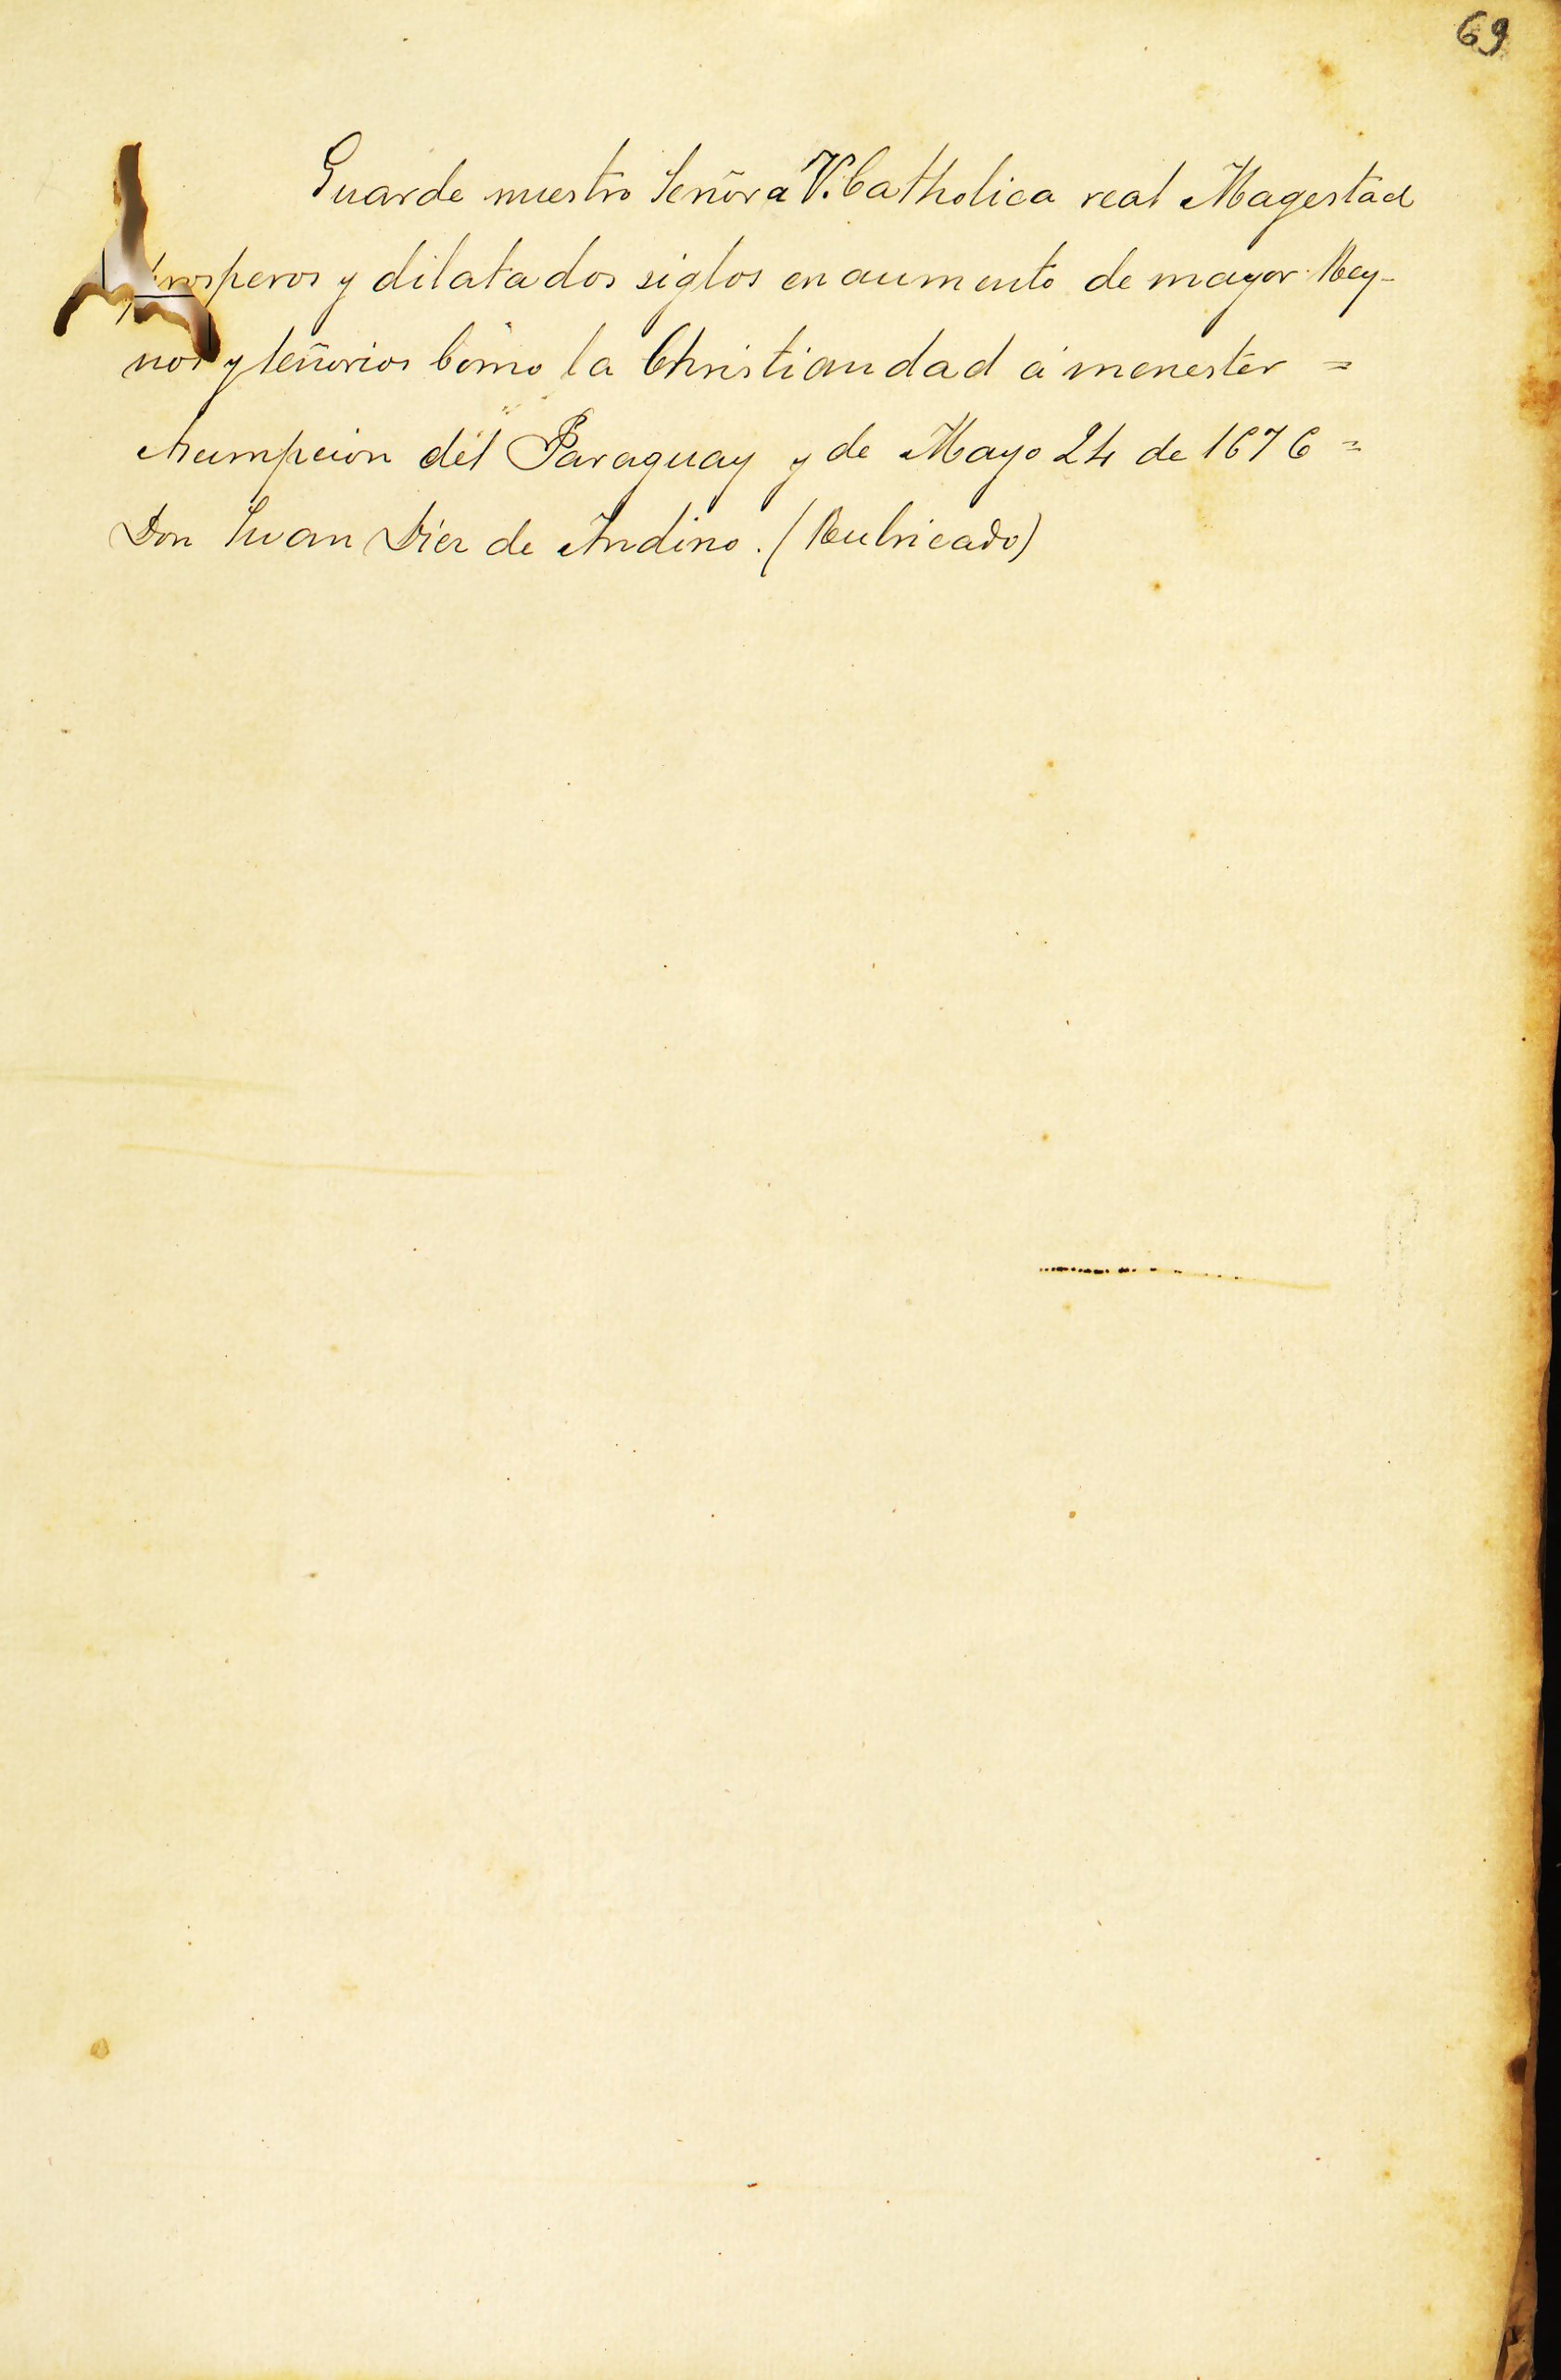 69
Guarde nuestro Señor a V. Catholica real Magestad
prosperos y dilatados siglos en aumento de mayor Rey-
nos y señorios como la Christiandad á menester =
Asumpcion del Paraguay y de Mayo 24 de 1676 =
Don Juan Diez de Andino. (Rubricado)